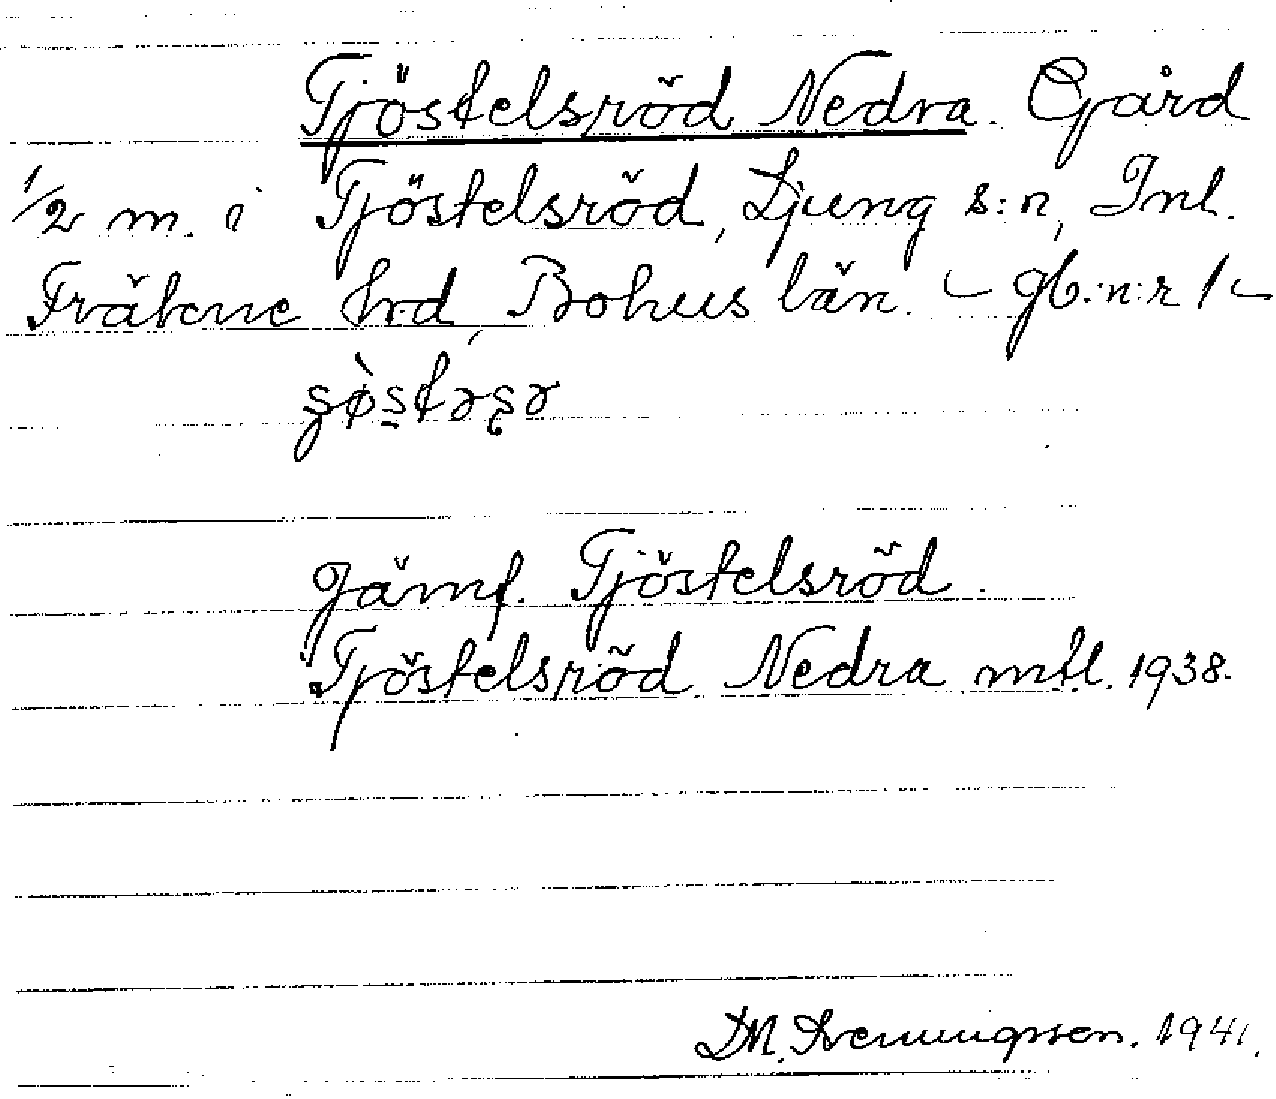 Tjöstelsröd Nedra. Gård
1/2 m. i Tjöstelsröd, Ljung s:n, Inl.
Fräkne hrd, Bohus län. – gb.:n:r 1 –
Jämf. Tjöstelsröd.
Tjöstelsröd Nedra mtl. 1938.
1941.